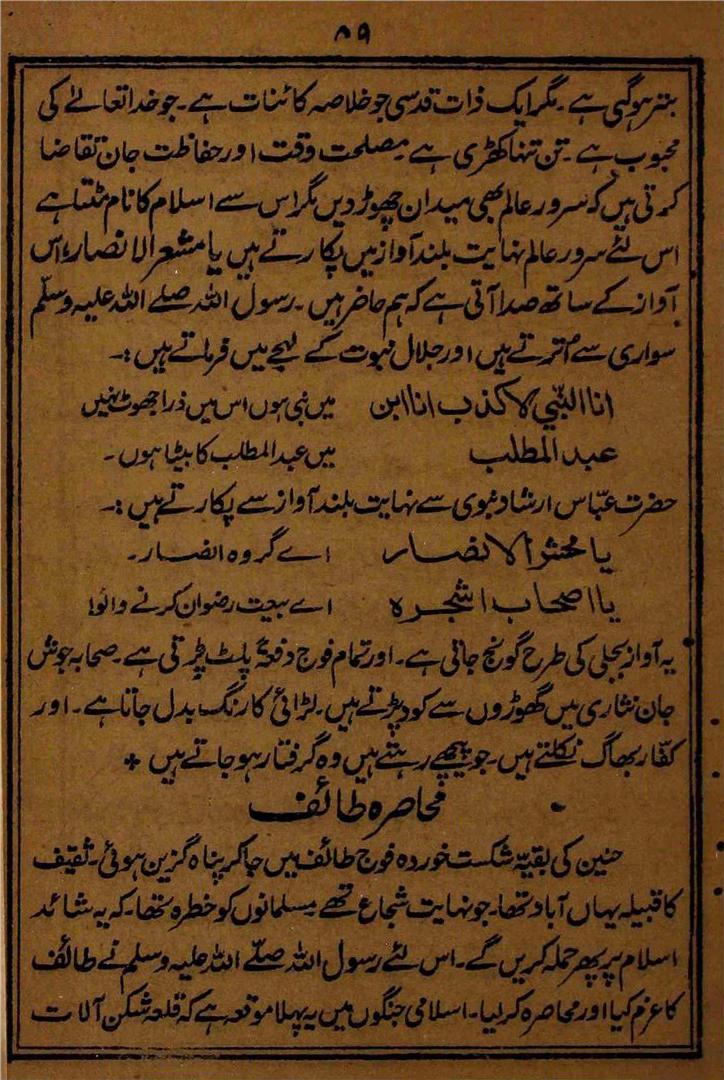 ۵۹
بتر ہوگئی ہے۔ مگر ایک ذات قدسی جو خلاصہ کائنات ہے۔ جو خدا تعالےٰ کی
محبوب ہے۔ تن تنہا کھڑی ہے۔ مصلحت وقت اور حفاظت جان تقاضا
کرتی ہیں کہ سرور عالم بھی میدان چھوڑ دیں مگر اس سے اسلام کا نام مٹتا ہے
اس لئے سرور عالم نہایت بلند آواز میں پکارتے ہیں یا مشعر الانصار، اس
آواز کے ساتھ صدا آتی ہے کہ ہم حاضر ہیں۔ رسول اللہ صلے اللہ علیہ وسلّم
سواری سے اُترتے ہیں اور جلال نبوت کے لہجے میں فرماتے ہیں :۔
انا النّبي لا كذب انا ابن میں نبی ہوں اس میں ذرا جھوٹ نہیں
عبد المطلب میں عبد المطلب کا بیٹا ہوں۔
حضرت عبّاس ارشاد نبوی سے نہایت بلند آواز سے پکارتے ہیں :۔
یا محشر الانصار اے گروہ انصار۔
یا اصحاب اشجرہ اے بیعت رضوان کرنے والو!
یہ آواز بجلی کی طرح گونج جاتی ہے۔ اور تمام فوج دفعۃً پلٹ پڑتی ہے۔ صحابہ جوش
جان نثاری میں گھوڑوں سے کود پڑتے ہیں۔ لڑائی کا رنگ بدل جاتا ہے۔ اور
کفّار بھاگ نکلتے ہیں۔ جو پیچھے رہتے ہیں وہ گرفتار ہو جاتے ہیں *
محاصرہ طائف
حنین کی بقیہ شکست خوردہ فوج طائف میں جا کر پناہ گزین ہوئی۔ ثقیف
کا قبیلہ یہاں آباد تھا۔ جو نہایت شجاع تھے۔ مسلمانوں کو خطرہ تھا۔ کہ یہ شائد
اسلام پر پھر حملہ کریں گے۔ اس لئے رسول اللہ صلّے اللہ علیہ وسلم نے طائف
کا عزم کیا اور محاصرہ کر لیا۔ اسلامی جنگوں میں یہ پہلا موقعہ ہے کہ قلعہ شکن آلات